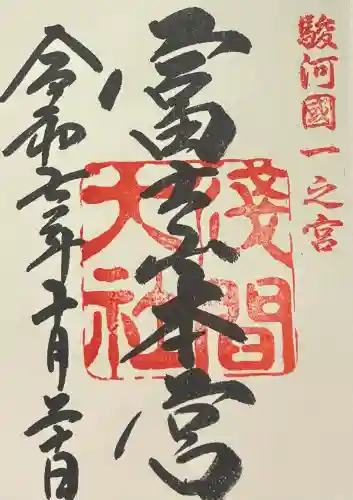 駿河國一之宮
富士本宮
淺間大社
令和七年十一月二十日